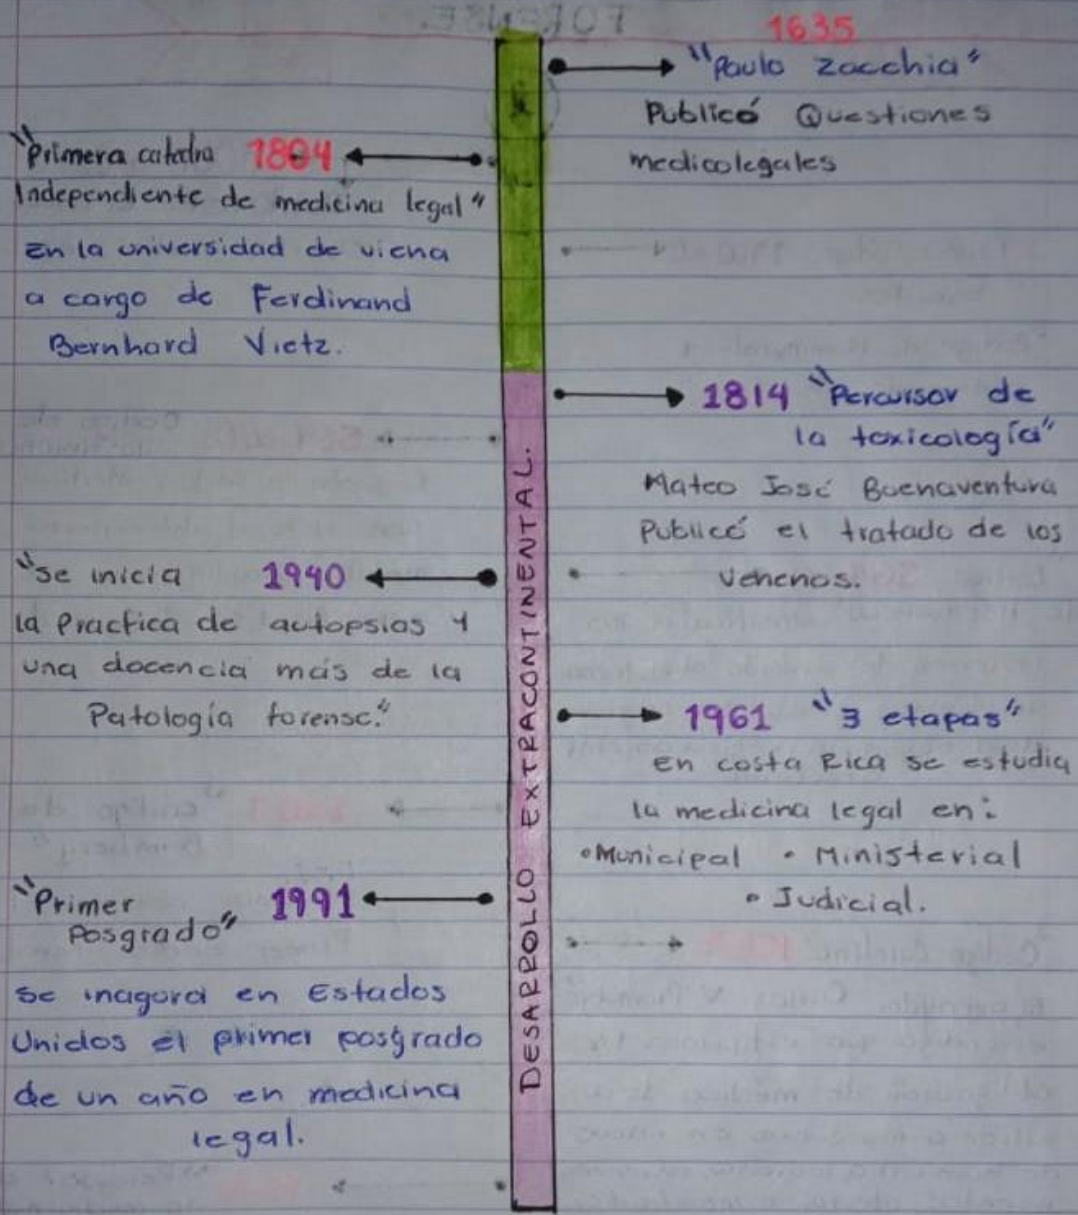 1635
"Paulo Zacchia"
Publicó Questiones
medicolegales
"Primera catedra 1804
Independiente de medicina legal"
En la universidad de viena
a cargo de Ferdinand
Bernhard Vietz.
1814 "Percursor de
la toxicología"
Mateo José Buenaventura
Publicó el tratado de los
venenos.
"se inicia 1940
la Practica de autopsias y
una docencia más de la
Patología forense."
1961 "3 etapas"
en costa Rica se estudia
la medicina legal en:
• Municipal • Ministerial
• Judicial.
"Primer 1991
Posgrado"
se inagora en Estados
Unidos el primer posgrado
de un año en medicina
legal.
DESARROLLO EXTRACONTINENTAL.